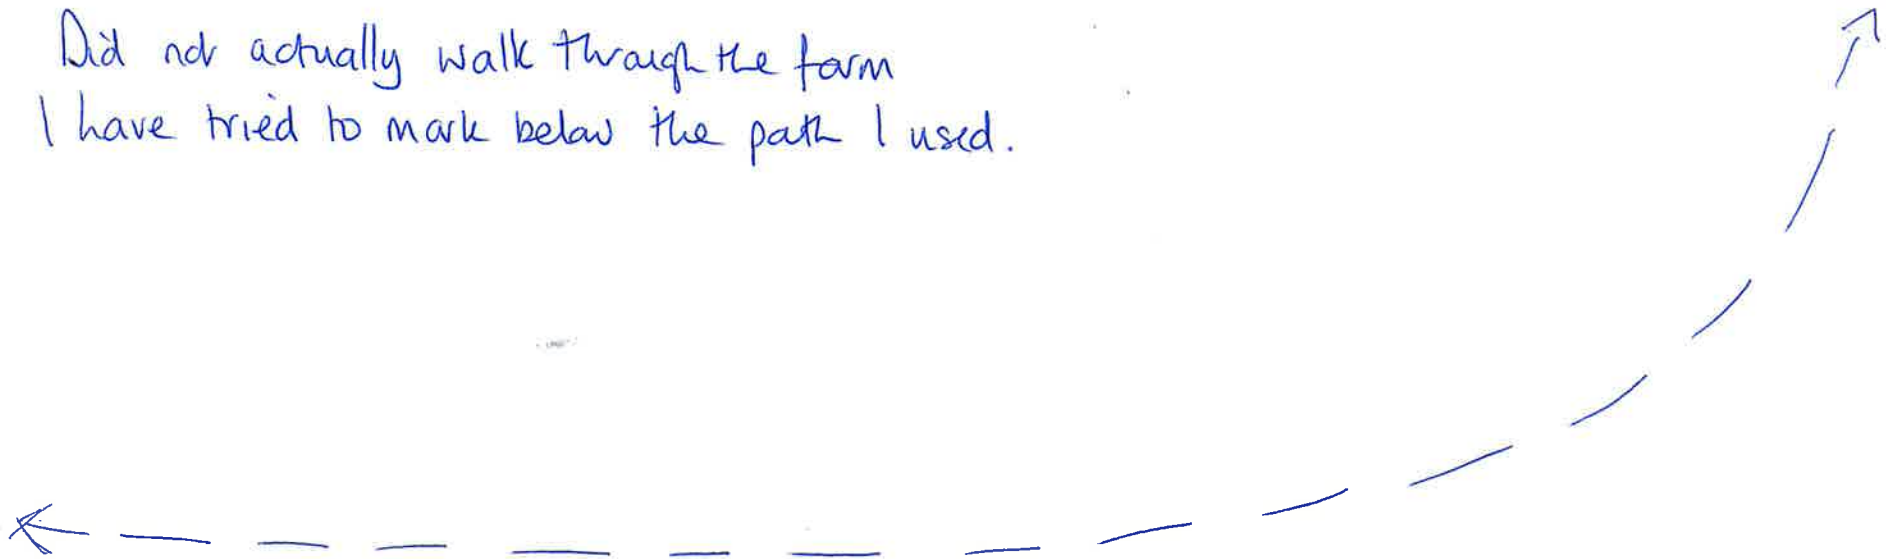 Did not actually walk through the farm
I have tried to mark below the path I used.